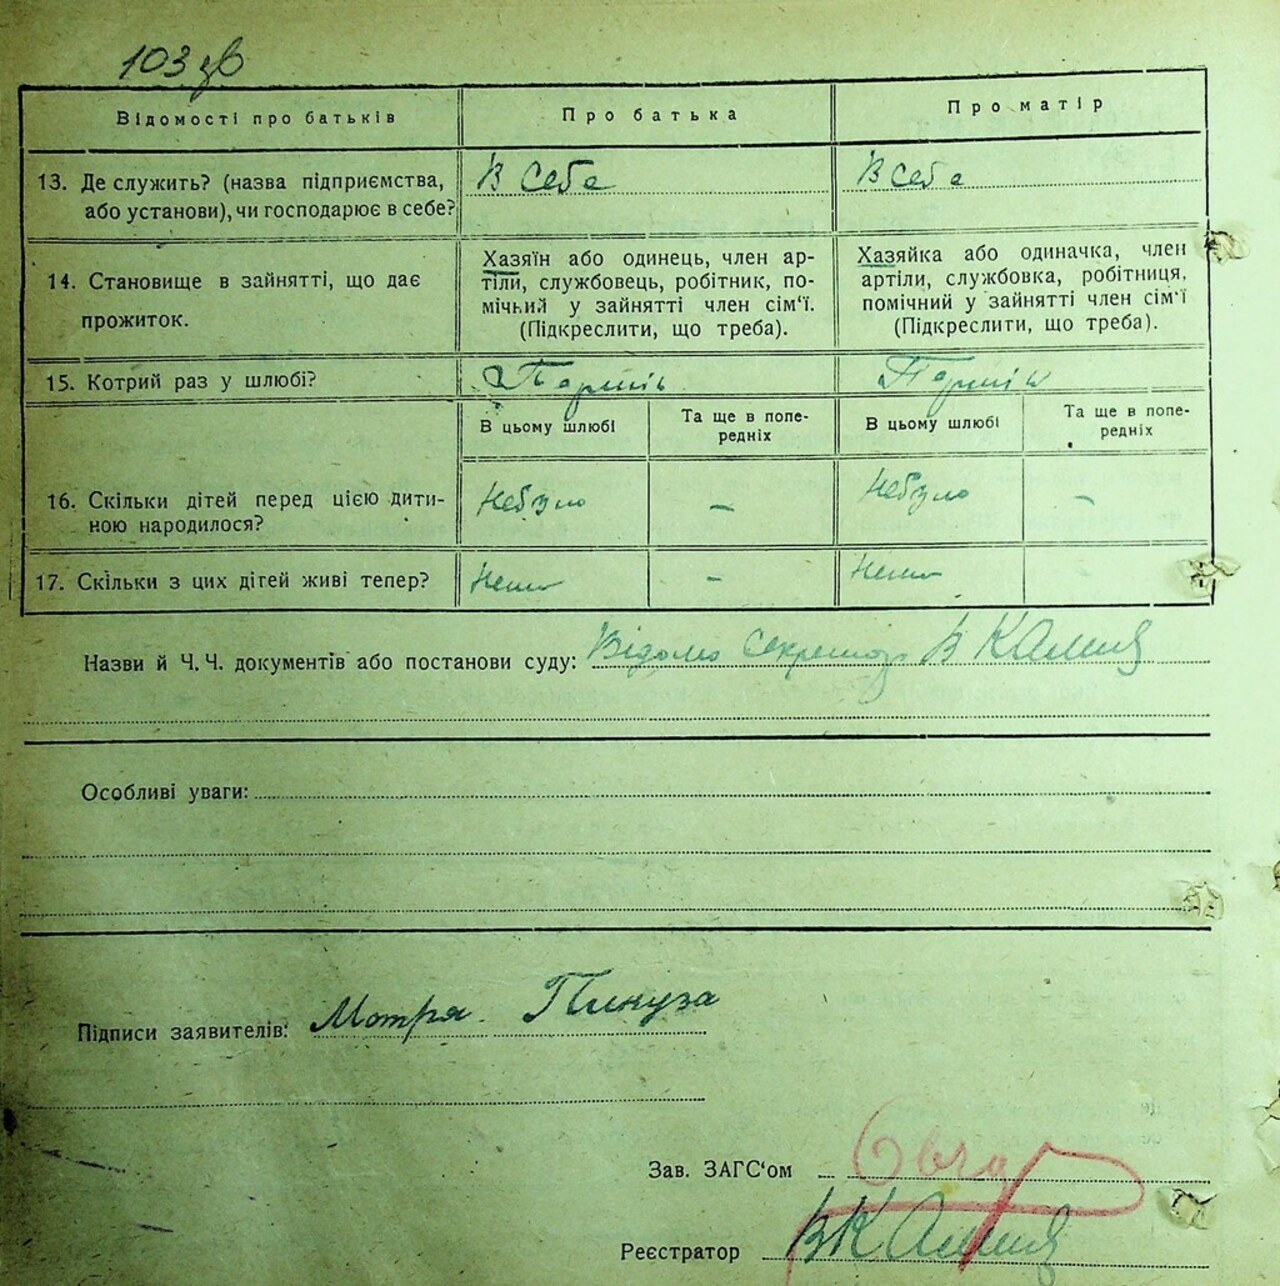 103 зв
Відомості про батьків
Про батька
Про матір
13. Де служить? (назва підприємства,
або установи), чи господарює в себе?
В себе
В себе
14. Становище в зайнятті, що дає
прожиток.
Хазяїн або одинець, член ар-
тіли, службовець, робітник, по-
мічний у зайнятті член сім'ї.
(Підкреслити, що треба).
Хазяйка або одиначка, член
артіли, службовка, робітниця,
помічний у зайнятті член сім'ї
(Підкреслити, що треба).
15. Котрий раз у шлюбі?
В цьому шлюбі
Та ще в попе-
редніх
В цьому шлюбі
Та ще в попе-
редніх
16. Скільки дітей перед цією дити-
ною народилося?
Небуло
—
Небуло
—
17. Скільки з цих дітей живі тепер?
Нема
—
Нема
Назви й Ч. Ч. документів або постанови суду: Відомо секретар В
Особливі уваги:
Підписи заявителів: Мотря Пикуза
Зав. ЗАГС'ом
Реєстратор